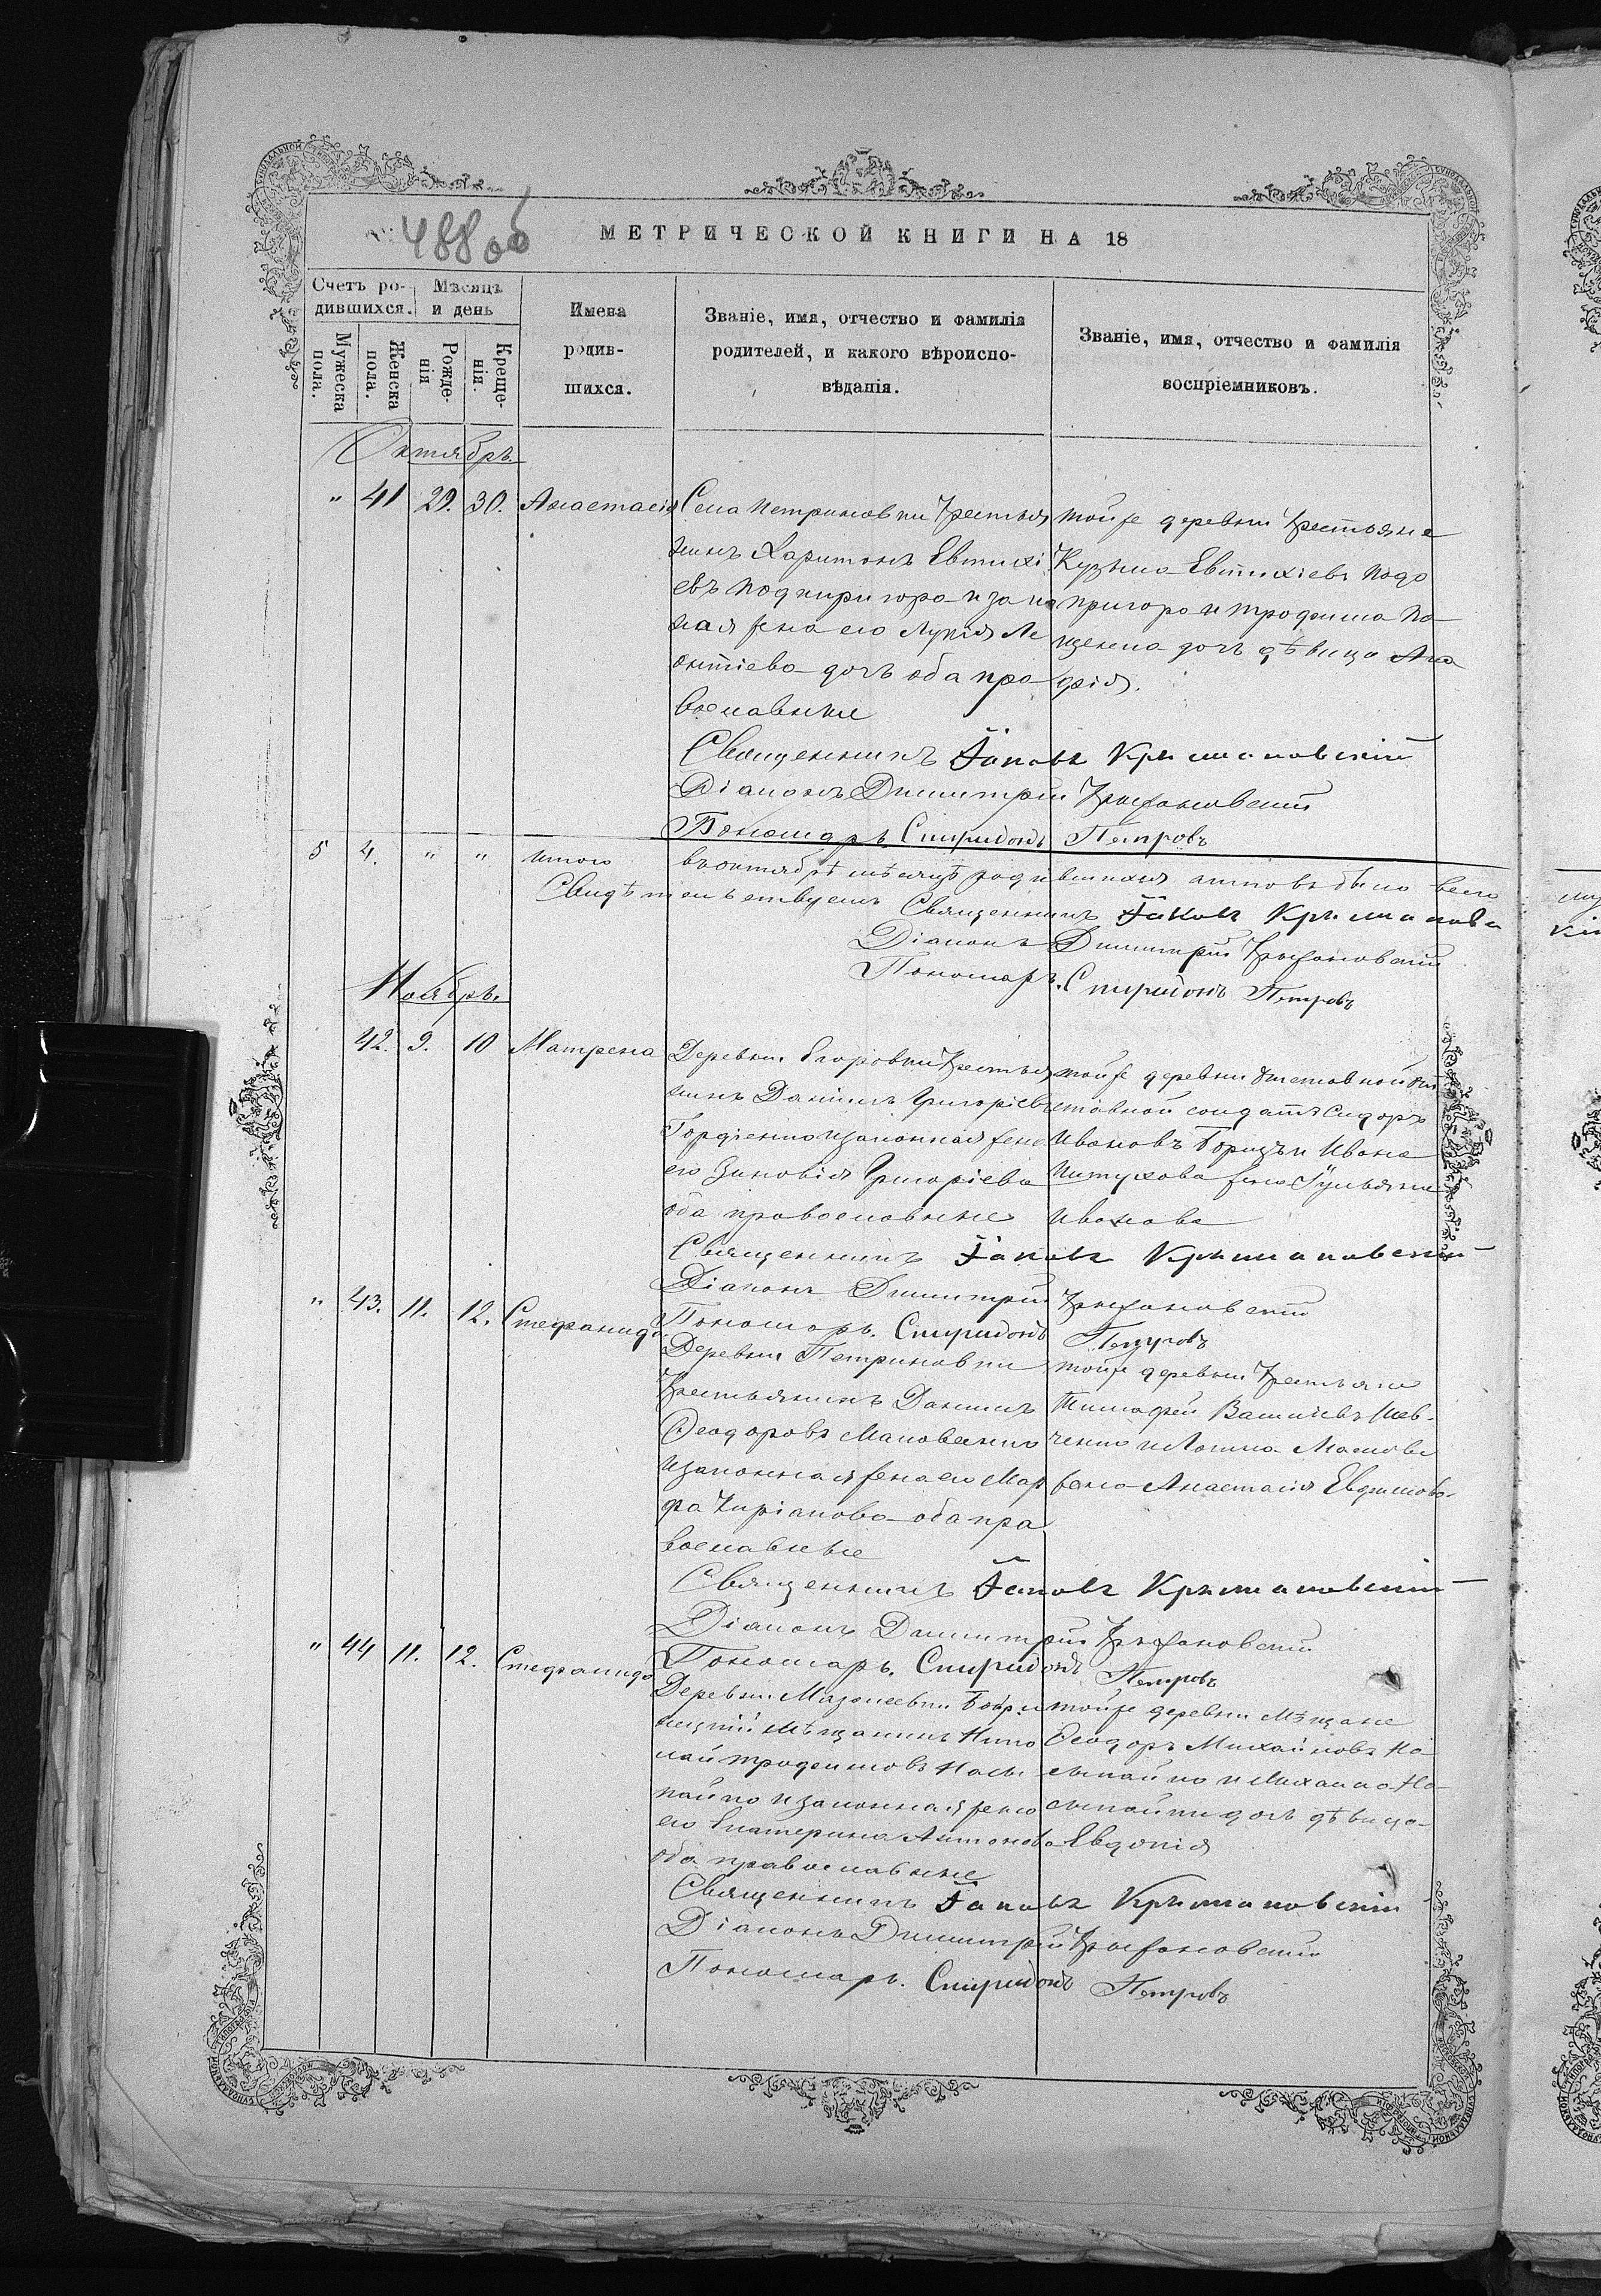 488 об
МЕТРИЧЕСКОЙ КНИГИ НА 18
Счетъ ро-
дившихся.
Мѣсяцъ
и день
Имена
родив-
шихся.
Званіе, имя, отчество и фамилія
родителей, и какого вѣроиспо-
вѣданія.
Званіе, имя, отчество и фамилія
воспріемниковъ.
Мужеска
пола.
Женска
пола.
Рожде-
нія
Креще-
нія.
Октябрь.
" 41 29. 30. Анастасія
Села Петриковки крестья
нинъ Харитонъ Евтихі
евъ Подпригора и закон
ная жена его Лукія Ле
онтіева дочь оба пра
вославные
тойже деревни крестьяне
Кузьма Евтихіевъ Подо
пригора и Трофима
дочь дѣвица
Священникъ Іаковъ Крыжановскій
Діаконъ Димитрій Крыжановскій
Пономарь Спиридонъ Петровъ
5 4. " " Итого въ октябрѣ мѣсяцѣ родившихся актовъ было всего
Свидѣтельствуемъ Священникъ Іаковъ
Діаконъ Димитрій Крыжановскій
Пономарь. Спиридонъ Петровъ
Ноябрь.
42. 9. 10 Матрена
Деревни Егоровки крестья
нинъ Даніилъ Григоріевъ
Гордіенко и законная жена
его Зиновія Григоріева
оба православные
тойже деревни
солдатъ Сидоръ
Ивановъ и Ивана
жена Іульяна
Иванова
Священникъ Іаковъ Крыжановскій
Діаконъ Димитрій Крыжановскій
Пономарь. Спиридонъ Петровъ
" 43. 11. 12. Стефанида
Деревни Петриковки
крестьянинъ Даніилъ
Ѳеодоровъ Маковецкій
и законная жена его Мар
фа Кирianова оба пра
вославные
тойже деревни крестьяне
Тимофей Василіевъ Шев-
ченко и
жена Анастасія Евфимова
Священникъ Іаковъ Крыжановскій
Діаконъ Димитрій Крыжановскій
Пономарь. Спиридонъ Петровъ
" 44 11. 12. Стефанида
Деревни
мѣщанинъ Нико
лай Трофимовъ Насы
пайко и законная жена
его Екатерина Антонова
оба православные
тойже деревни мѣщане
Ѳеодоръ Михайловъ На
сыпайко и Михаила На-
сыпайки дочь дѣвица
Евдокія
Священникъ Іаковъ Крыжановскій
Діаконъ Димитрій Крыжановскій
Пономарь. Спиридонъ Петровъ